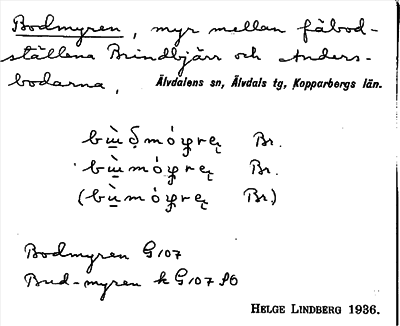 Bodmyren, myr mellan fäbod-
ställena Brindbjärr och Anders-
bodarna, Älvdalens sn, Älvdals tg, Kopparbergs län.
Br.
Br.
Br.)
Bodmyren G107
Bud-myren k G107 SO
HELGE LINDBERG 1936.